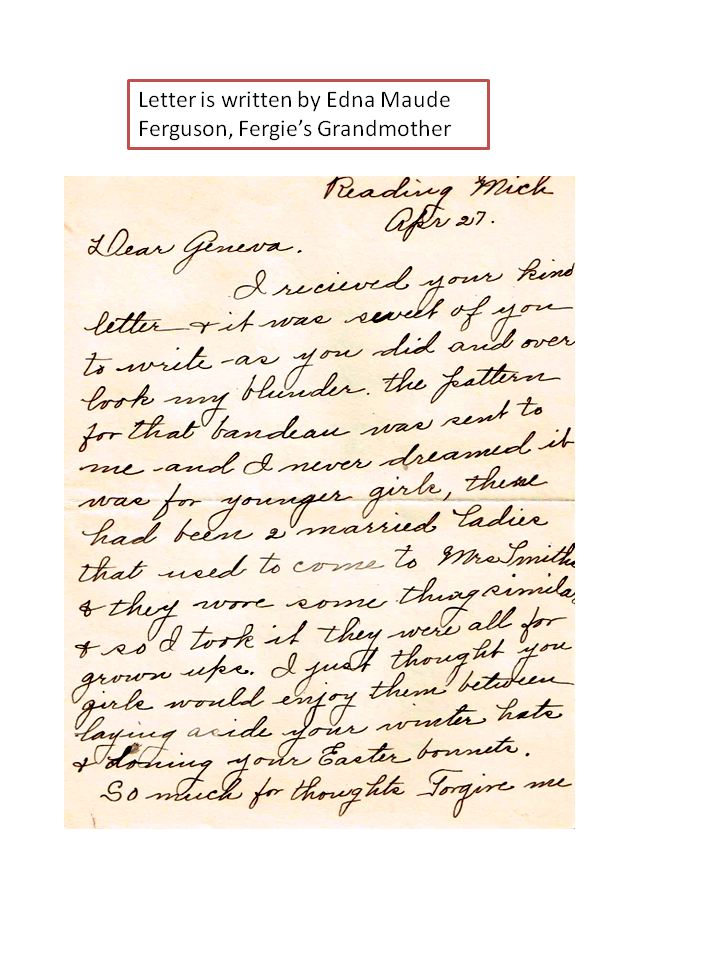 Letter is written by Edna Maude
Ferguson, Fergie's Grandmother
Reading Mich
Apr 27.
Dear Geneva.
I recieved your kind
letter & it was sweet of you
to write as you did and over
look my blunder. the pattern
for that bandeau was sent to
me and I never dreamed it
was for younger girls, there
had been 2 married ladies
that used to come to Mrs Smiths
& they wore some thing similar
& so I took it they were all for
grown ups. I just thought you
girls would enjoy them between
laying aside your winter hats
& doning your Easter bonnets.
So much for thoughts Forgive me